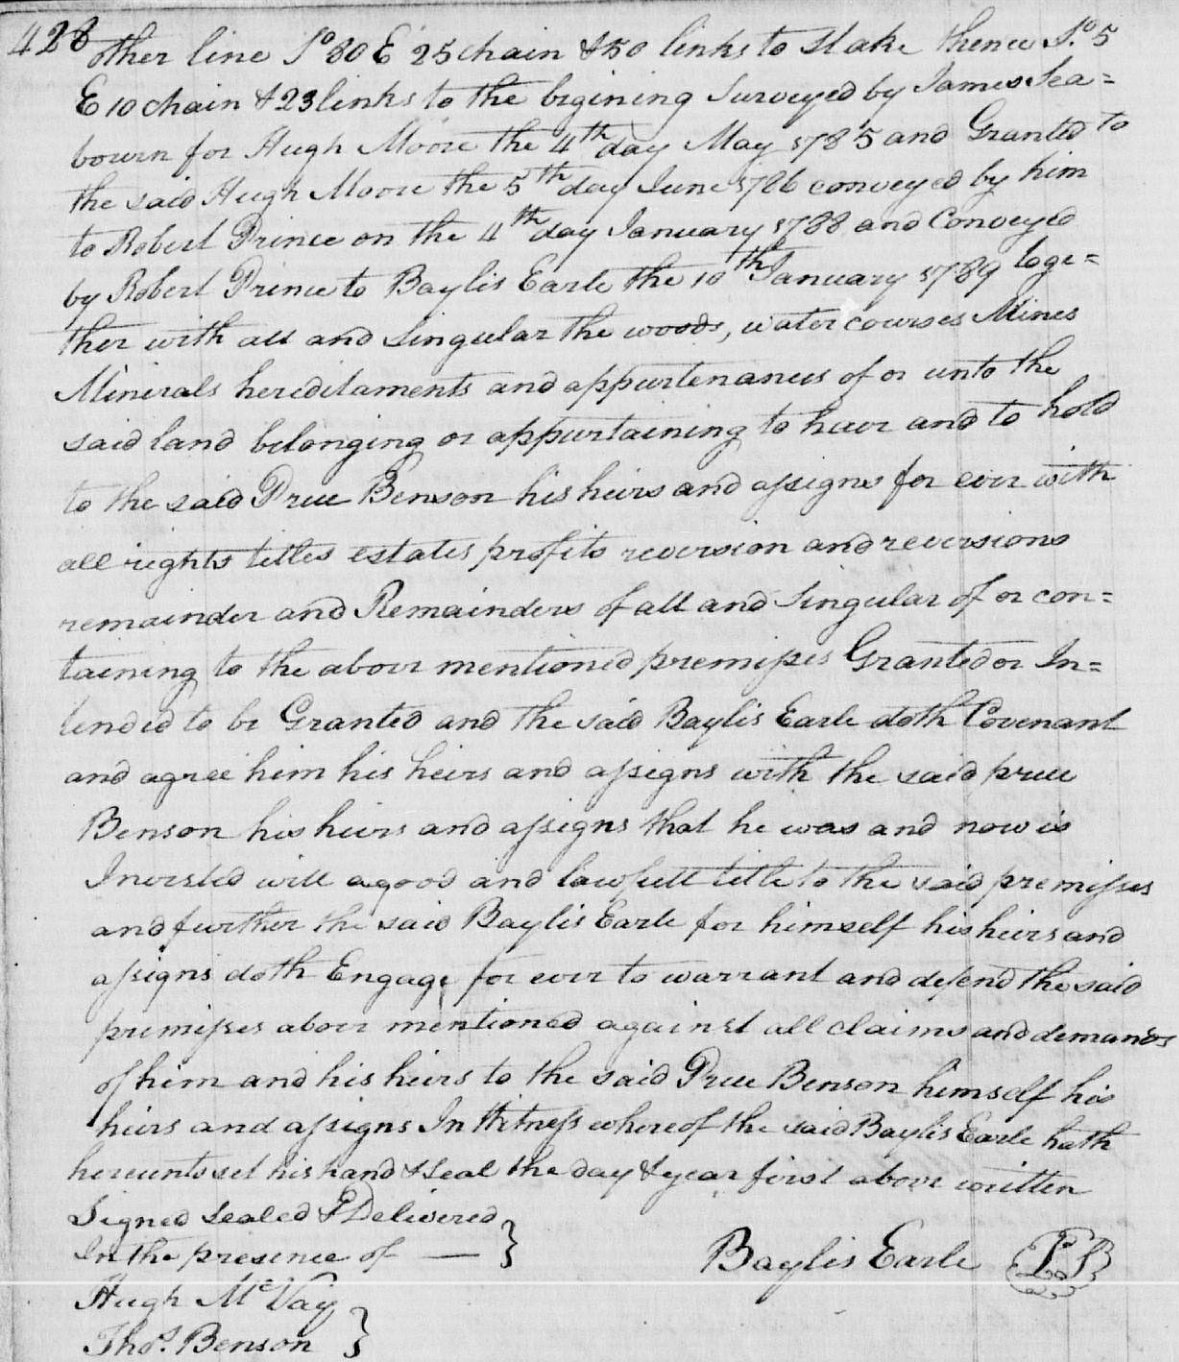 428 other line So 80 E 25 chain & 50 links to stake thence So 5
E 10 chain & 23 links to the begining Surveyed by James Sea=
bourn for Hugh Moore the 4th day May 1785 and Granted to
the said Hugh Moore the 5th day June 1786 conveyed by him
to Robert Prince on the 4th day January 1788 and Conveyed
by Robert Prince to Baylis Earle the 10th January 1789 toge=
ther with all and Singular the woods, water courses Mines
Minerals hereditaments and appurtenances of or unto the
said land belonging or appurtaining to have and to hold
to the said Prue Benson his heirs and assigns for ever with
all rights titles estates profits reversion and reversions
remainder and Remainders of all and Singular of or con=
taining to the above mentioned premisses Granted or In=
tended to be Granted and the said Baylis Earle doth Covenant
and agree him his heirs and assigns with the said prue
Benson his heirs and assigns that he was and now is
Invested will a good and lawfull title to the said premisses
and further the said Baylis Earle for himself his heirs and
assigns doth Engage for ever to warrant and defend the said
premisses above mentioned against all claims and demands
of him and his heirs to the said Prue Benson himself his
heirs and assigns In Witness whereof the said Baylis Earle hath
hereunto set his hand & Seal the day & year first above written
Signed Sealed & Delivered
In the presence of — }
Baylis Earle LS
Hugh McVay
Thos. Benson }